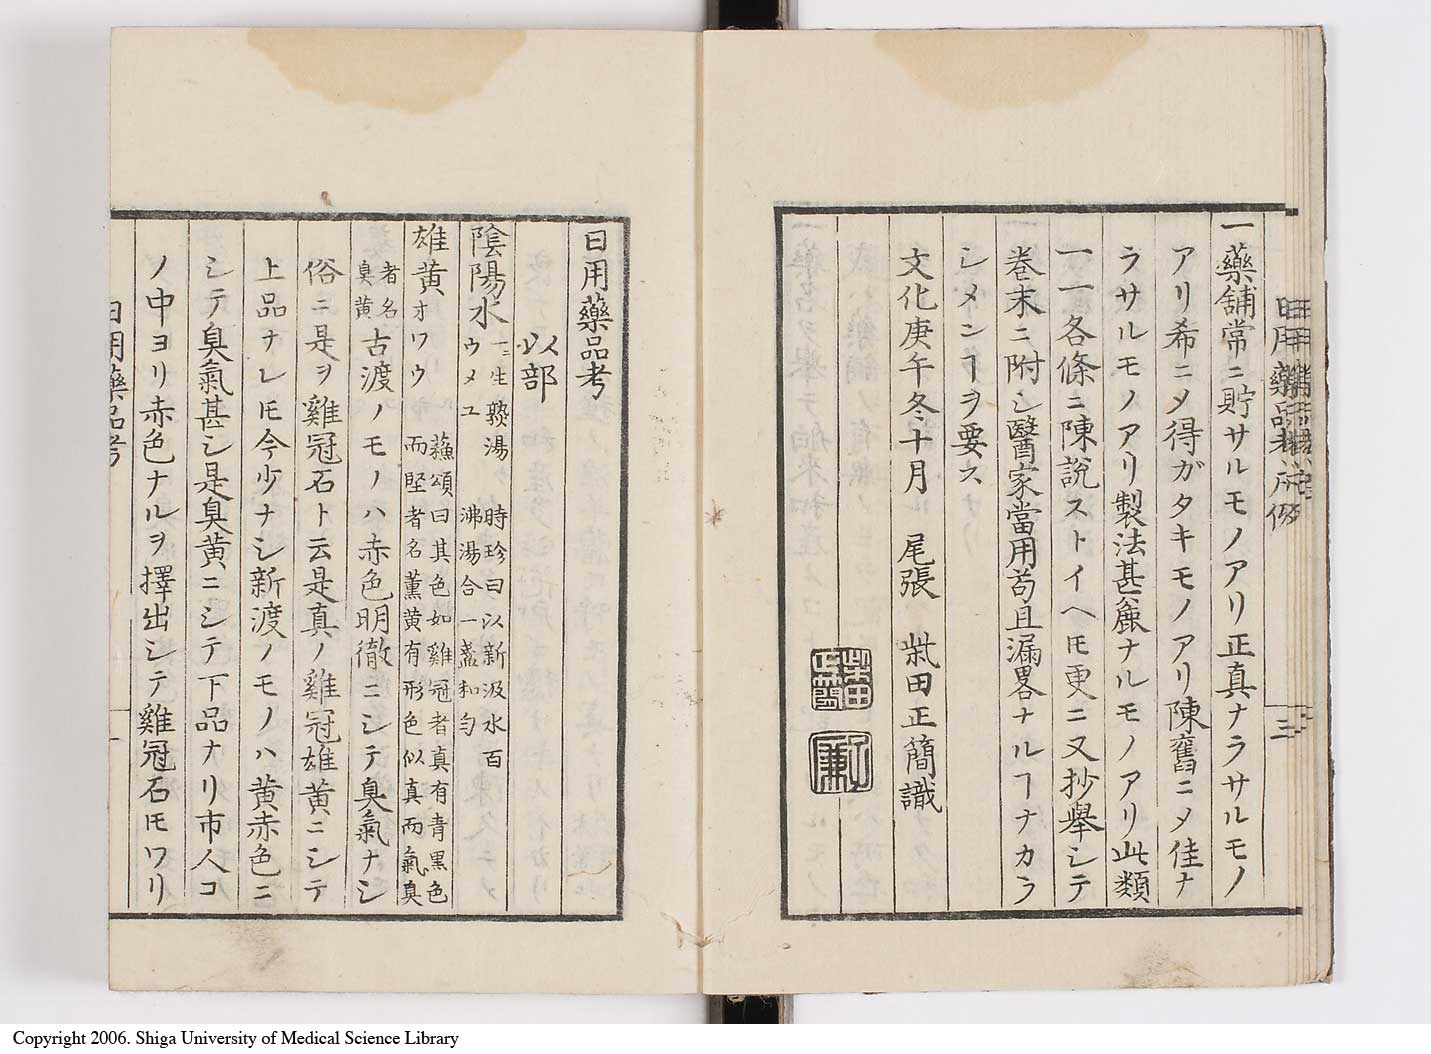 一藥舖常ニ貯サルモノアリ正真ナラサルモノ
アリ希ニ〆得ガタキモノアリ陳舊ニ〆佳ナ
ラサルモノアリ製法甚麁ナルモノアリ此類
一一各條ニ陳說ストイヘ𪜈更ニ又抄舉シテ
巻末ニ附シ醫家當用苟且漏畧ナルヿナカラ
シメンヿヲ要ス
文化庚午冬十月　尾張　柴田正簡識
日用藥品考
以部
陰陽水 一ニ生熟湯 ウメユ 時珍曰以新汲水百沸湯合一盞和匀
雄黄 オワウ 蘓頌曰其色如雞冠者真有青黑色而堅者名薫黄有形色似真而氣臭
者名臭黄 古渡ノモノハ赤色明徹ニシテ臭氣ナシ
俗ニ是ヲ雞冠石ト云是真ノ雞冠雄黄ニシテ
上品ナレ𪜈今少ナシ新渡ノモノハ黄赤色ニ
シテ臭氣甚シ是臭黄ニシテ下品ナリ市人コ
ノ中ヨリ赤色ナルヲ擇出シテ雞冠石𪜈ワリ
日用藥品考
Copyright 2006. Shiga University of Medical Science Library